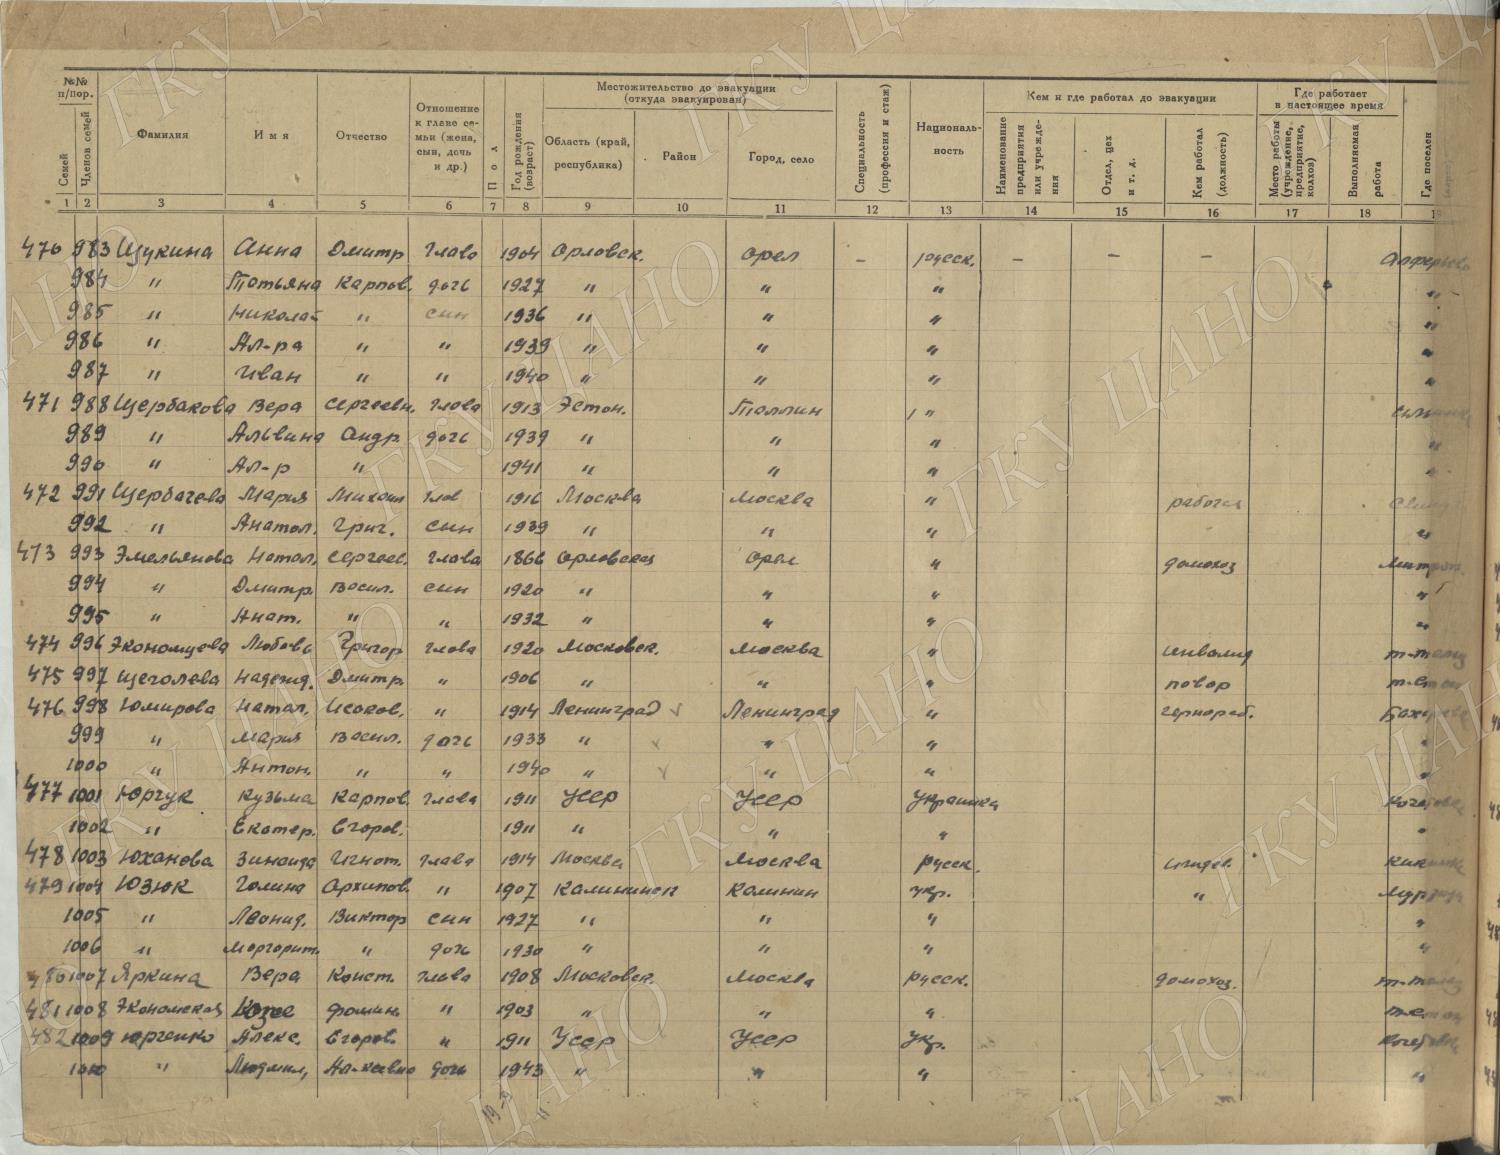 №№ п/пор.
Семей
Членов семей
Фамилия
Имя
Отчество
Отношение к главе семьи (жена, сын, дочь и др.)
Пол
Год рождения (возраст)
Местожительство до эвакуации (откуда эвакуирован)
Область (край, республика)
Район
Город, село
Специальность (профессия и стаж)
Националь-ность
Кем и где работал до эвакуации
Наименование предприятия или учрежде-ния
Отдел, цех и т. д.
Кем работал (должность)
Где работает в настоящее время
Место работы (учреждение, предприятие, колхоз)
Выполняемая работа
Где поселен
1 2 3 4 5 6 7 8 9 10 11 12 13 14 15 16 17 18
470 983 Щукина Анна Дмитр глава 1904 Орловск. Орел – русск. – – –
984 " Татьяна Карпов. дочь 1927 " " " "
985 " Николай " син 1936 " " " "
986 " Ал-ра " " 1939 " " " "
987 " Иван " " 1940 " " " "
471 988 Щербакова Вера Сергеевн. глава 1913 Эстон. Таллин "
989 " Альвина Андр. дочь 1939 " " " "
990 " Ал-р " 1941 " " " "
472 991 Щербачева Мария Михаил глав 1916 Москва Москва "
992 " Анатол. Григ. син 1939 " " " "
473 993 Эмельянова Натал. Сергеев. глава 1866 Орловская Орел " домохоз
994 " Дмитр. Васил. син 1920 " " " "
995 " Анат. " " 1932 " " " "
474 996 Экономцева Любовь Григор глава 1920 Московск. Москва " инвалид
475 997 Щеголева Надежд. Дмитр. " 1906 " " " повар
476 998 Юмирова Натал. Исаков. " 1914 Ленинград Ленинград " чернораб.
999 " Мария Васил. дочь 1933 " " " "
1000 " Антон. " " 1940 " " " "
477 1001 Юргук Кузьма Карпов. глава 1911 УССР УССР Украинка
1002 " Екатер. Егоров. 1911 " " " "
478 1003 Юханова Зинаида Игнат. глава 1914 Москва Москва русск. иждев.
479 1004 Юзюк Галина Архипов. " 1907 Калининск Калинин укр. "
1005 " Леонид. Виктор син 1927 " " " "
1006 " Моргорит. " дочь 1930 " " " "
480 1007 Яркина Вера Конст. глава 1908 Московск. Москва русск. домохоз.
481 1008 Экономская Фомин. " 1903 " " "
482 1009 Юрченко Алекс. Егоров. " 1911 УССР УССР Укр.
1010 " Людмил, дочь 1943 " " " "
ГКУ ЦАНО